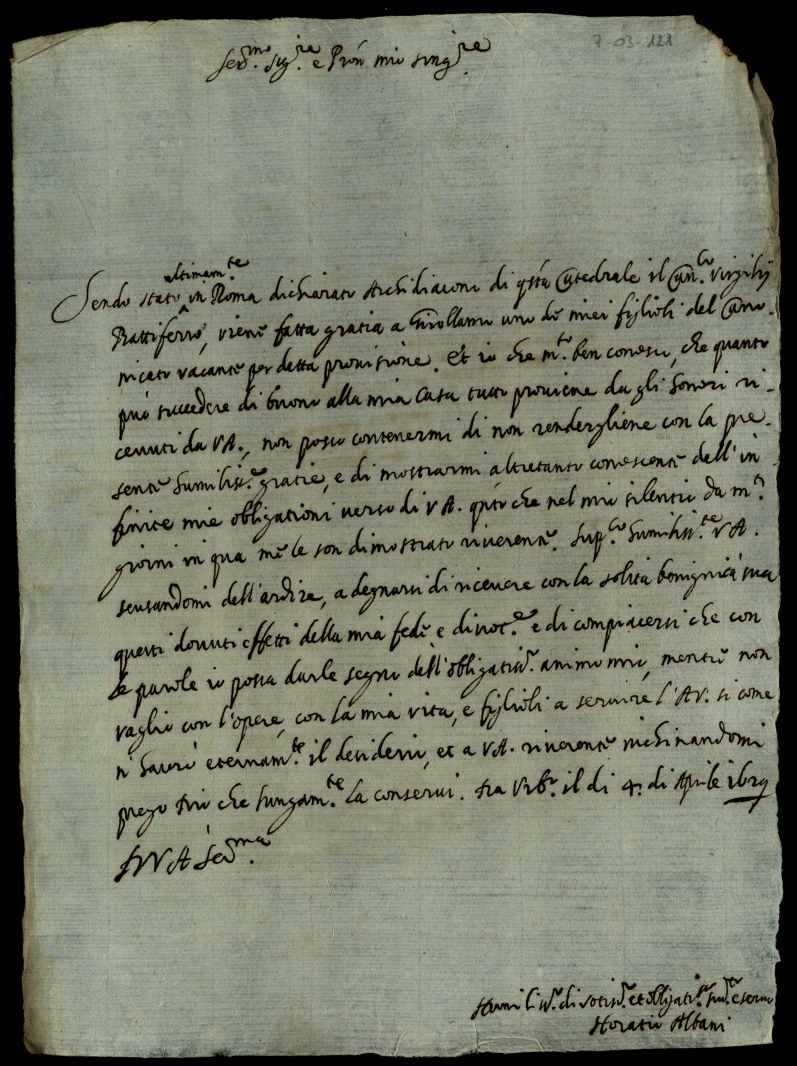 7-03-121
Ser.mo Sig.re e Pron mio sing.re
Sendo stato ultimam.te in Roma dichiarato Archidiacono di q.sta Catedrale il Can.co Virgilij
Rattiferro, viene fatta gratia a Girollamo uno de miei figlioli del Cano-
nicato vacante per detta provisione. Et io che m.to ben conosco, che quanto
può succedere di buono alla mia Casa tutto proviene da gli honori ri-
cevuti da VA., non posso contenermi di non renderglene con la pre-
sente humiliss.e gratie, e di mostrarmi altretanto conoscente dell'in-
finite mie obligationi verso di VA. q.nto che nel mio silentio da m.ti
giorni in qua me le son dimostrato riverente. Sup.co humiliss.te VA.
scusandomi dell'ardire, a degnarsi di ricevere con la solita benignità sua
questi dovuti effetti della mia fede e divot.e e di compiacersi che con
le parole io possa darle segno dell'obligatiss.o animo mio, mentre non
vaglio con l'opere, con la mia vita, e figlioli a servire l'AV. si come
n'haverò eternam.te il desiderio, et a VA. riverente inchinandomi
prego Iddio che lungam.te la conservi. Da Urb.o il di 4. di Aprile 1629
D V A Ser.ma
Humiliss.o divotiss.o et obligatiss.o sud.to e servo
Horatio Albani